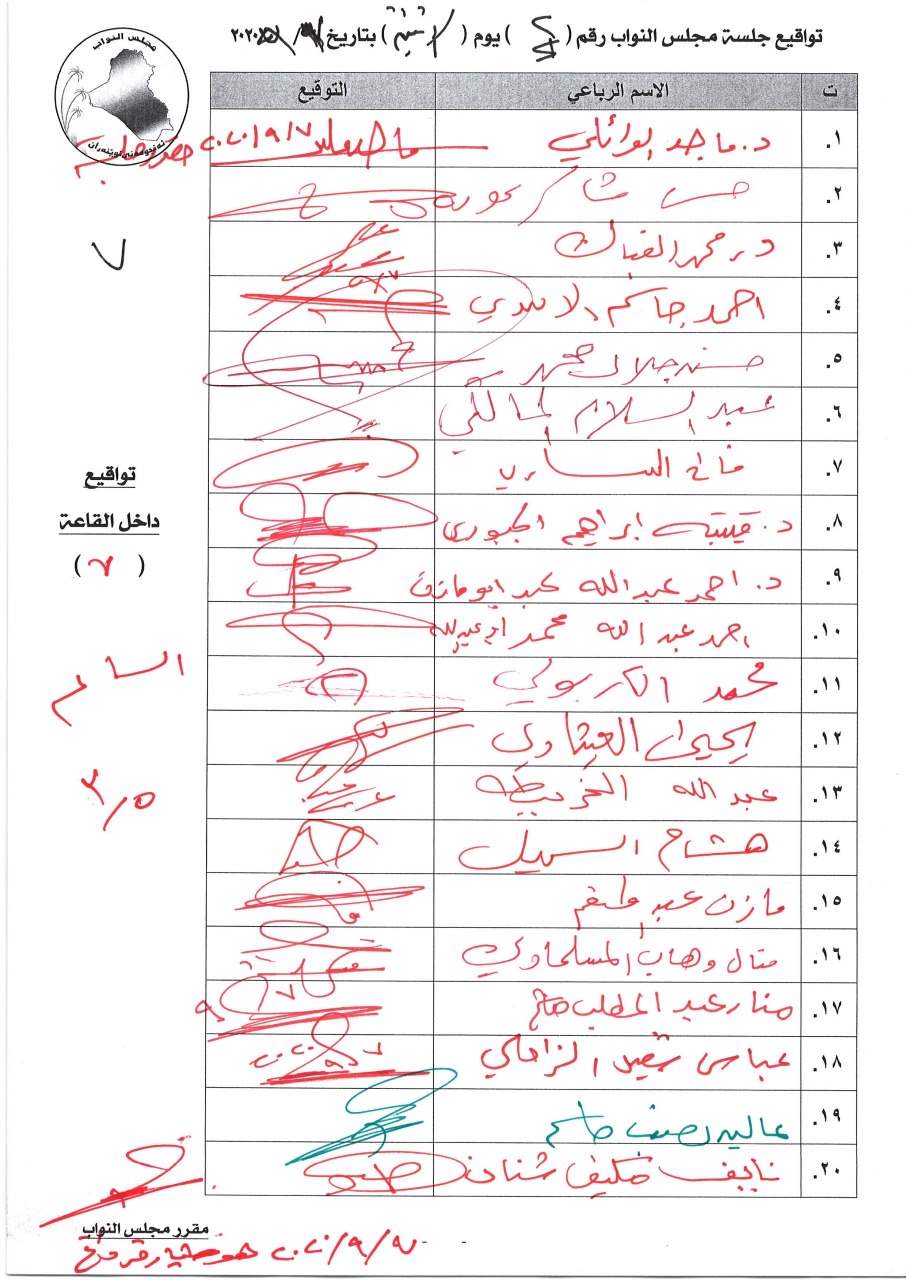 تواقيع جلسة مجلس النواب رقم ( ) يوم ( ) بتاريخ ٢٠٢٠/٩/٧
مجلس النواب
ت الاسم الرباعي التوقيع
١. د. ماجد الوائلي ٢٠٢٠/٩/٧
٢. حسن شاكر
٣. د. محمد
٤. احمد جاسم الاسدي
٥. حسن جلال محمد
٦. عبد السلام المالكي
٧. فالح الساري
٨. د. قتيبة ابراهيم الجبوري
٩. د. احمد عبدالله عبد
١٠. احمد عبد الله محمد
١١. محمد الكربولي
١٢. يحيى العيثاوي
١٣. عبد الله الخربيط
١٤. هشام السهيل
١٥. مازن عبد المنعم
١٦. منال وهاب المسلماوي
١٧. منار عبد المطلب هاشم
١٨. عباس الزاملي
١٩. عاليه نصيف جاسم
٢٠. نايف مكيف شنان
٧
تواقيع
داخل القاعة
( ٧ )
الساعة
٣/٥
مقرر مجلس النواب
٢٠٢٠/٩/٧